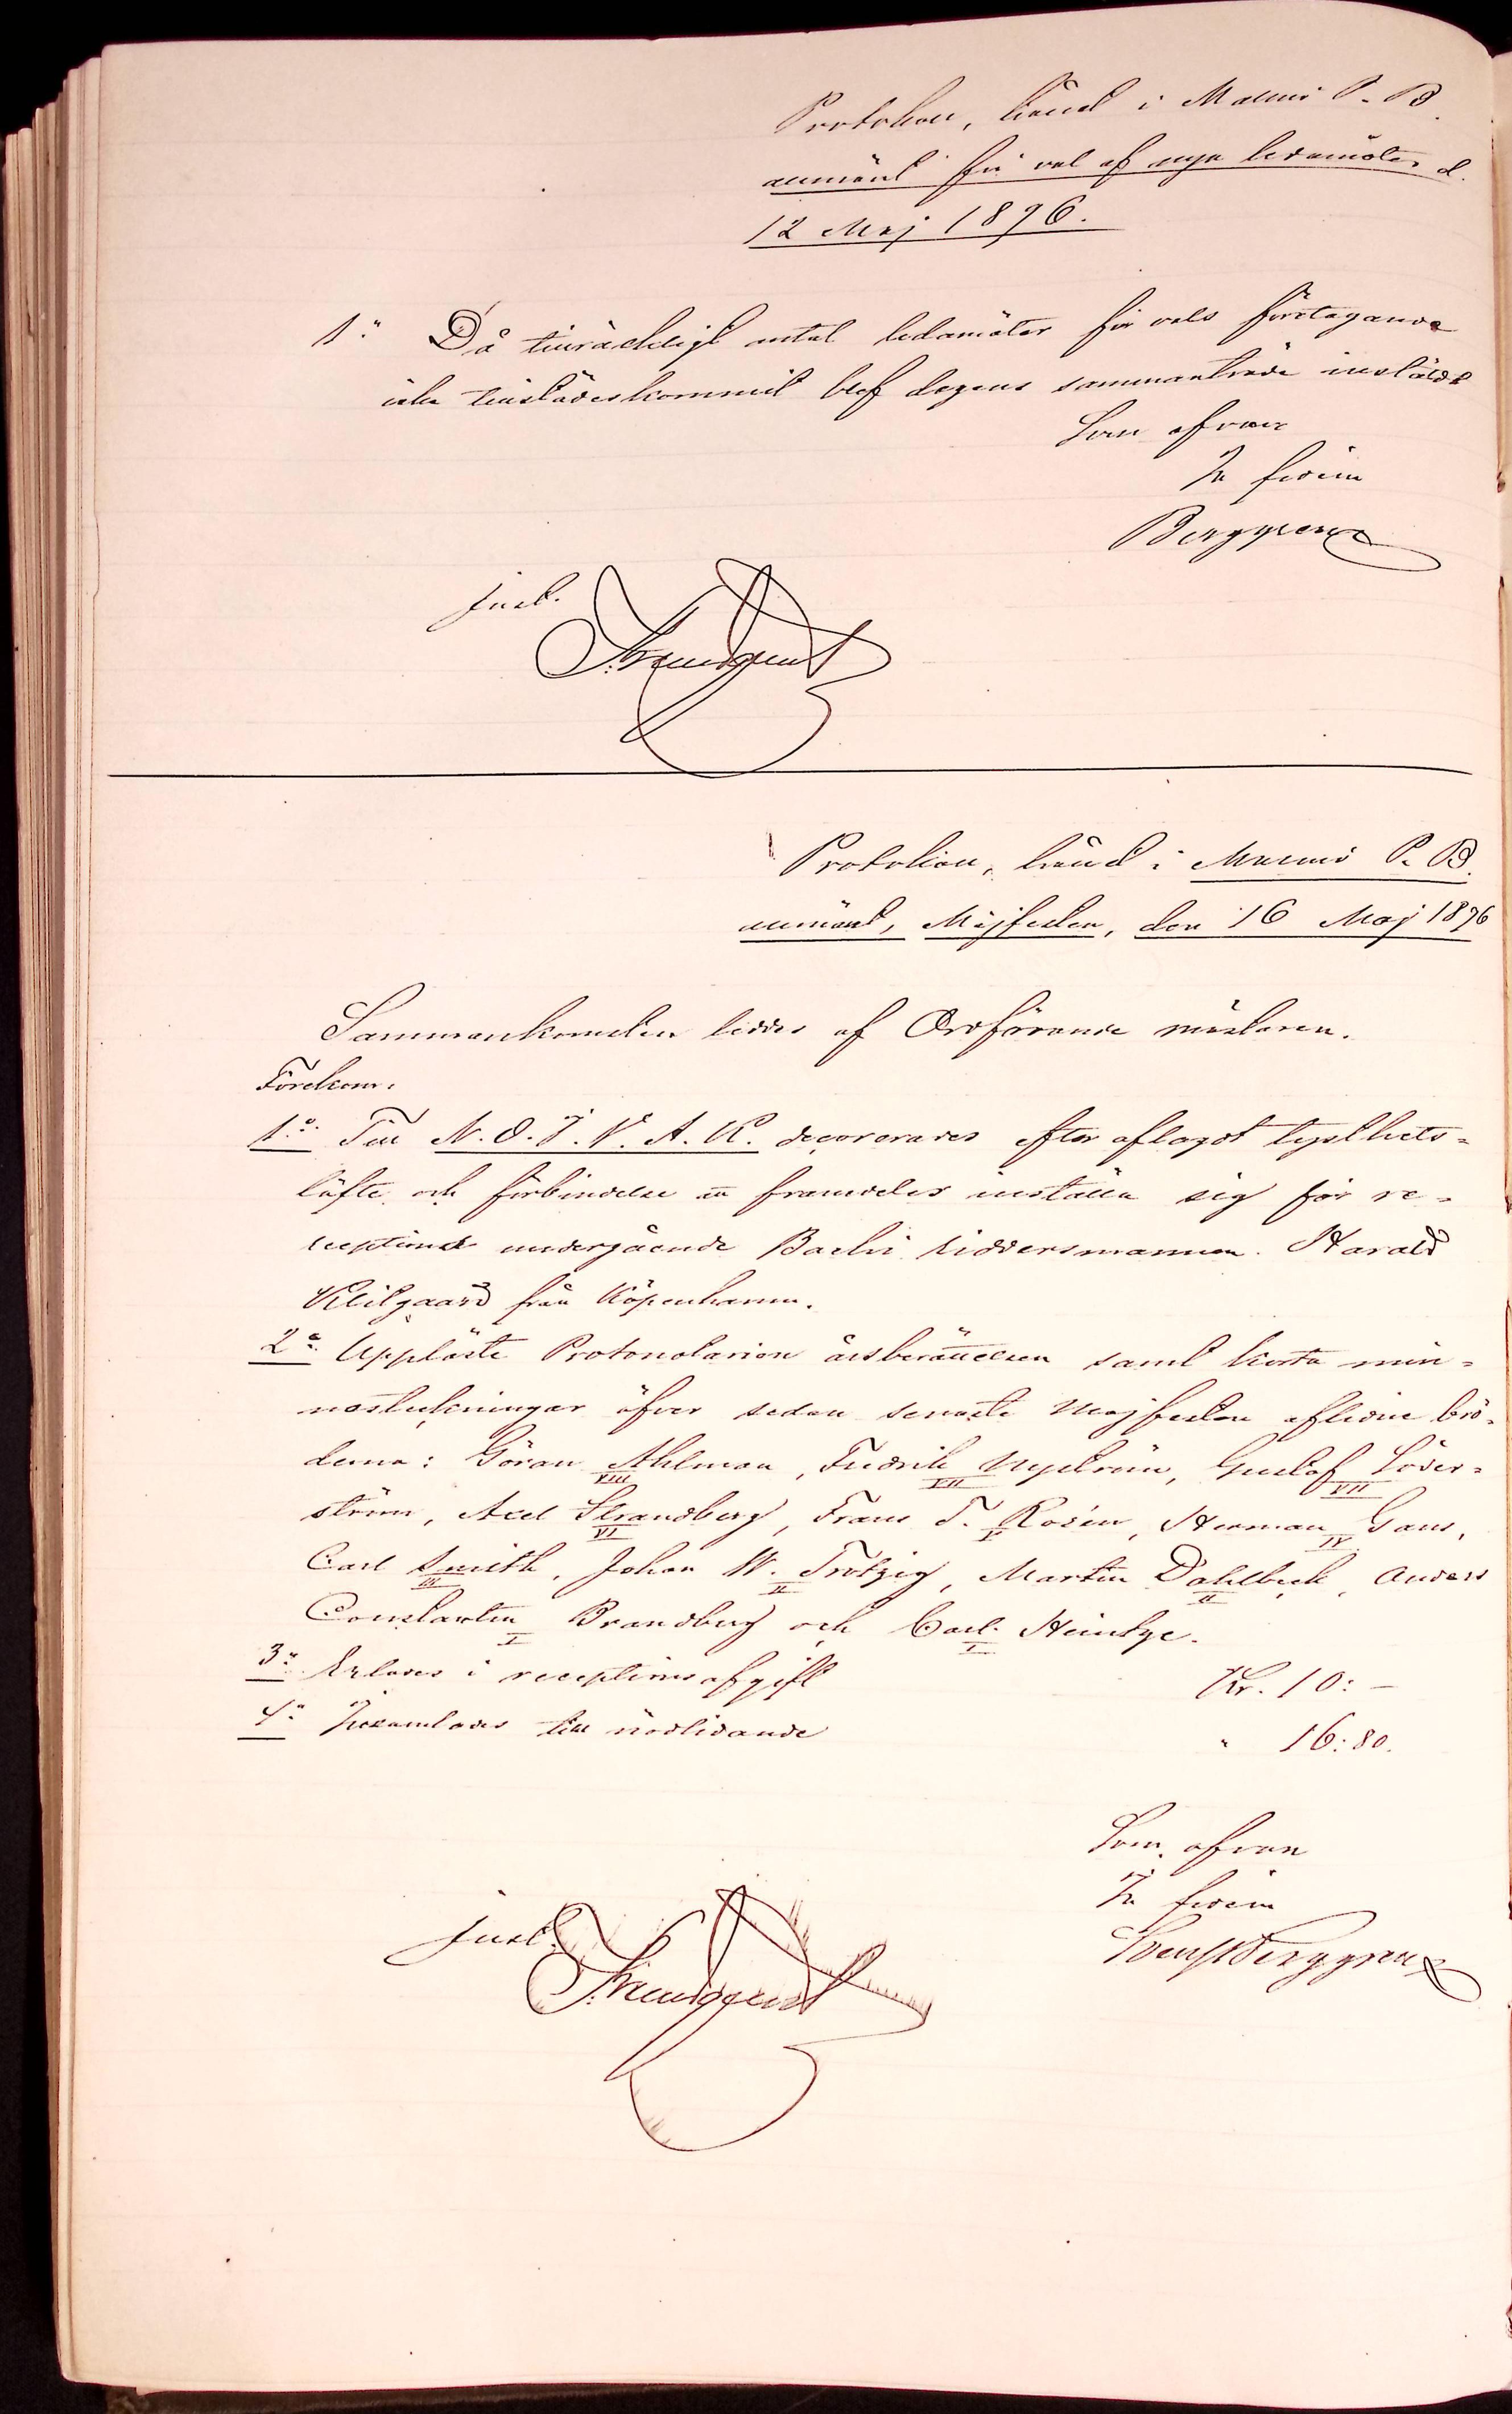 Protokoll, hållet i Malmö P. B.
allmänt för val af nya ledamöter d.
12 Maj 1896.
1º Då tillräckligt antal ledamöter för vals företagande
icke tillstädeskommit blef dagens sammanträde instäldt
Som ofvan
In fidem
Berggren
Just.
Protokoll, hållet i Malmö P. B.
allmänt, Majfesten, den 16 Maj 1896
Sammankomsten leddes af Ordförande mästaren.
Förekom:
1º Till N. O. J. N. A. R. decorerades efter aflagdt tysthets-
löfte och förbindelse att framdeles inställa sig för re-
ceptions undergående Bacchi riddersmannen Harald
Klitgaard från Köpenhamn.
2º Uppläste Protonotarien årsberättelsen samt korta min-
nesteckningar öfver sedan senaste Majfesten aflidne brö-
derna: Göran Ahlman, Fredrik Nyström, Gustaf Söder-
VIII VII VII
ström, Axel Strandberg, Frans T. Rosén, Herman Gans,
VI V IV
Carl Smith, Johan W. Trotzig, Martin Dahlbeck, Anders
III II II
Constantin Brandberg och Carl Heintze.
I I
3º Erlades i receptionsafgift Kr. 10: –
4º Insamlades till nödlidande " 16: 80.
Som ofvan
In fidem
Berggren
Just.